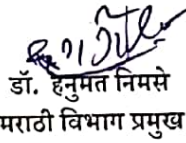 डॉ. हनुमंत निमसे
मराठी विभाग प्रमुख